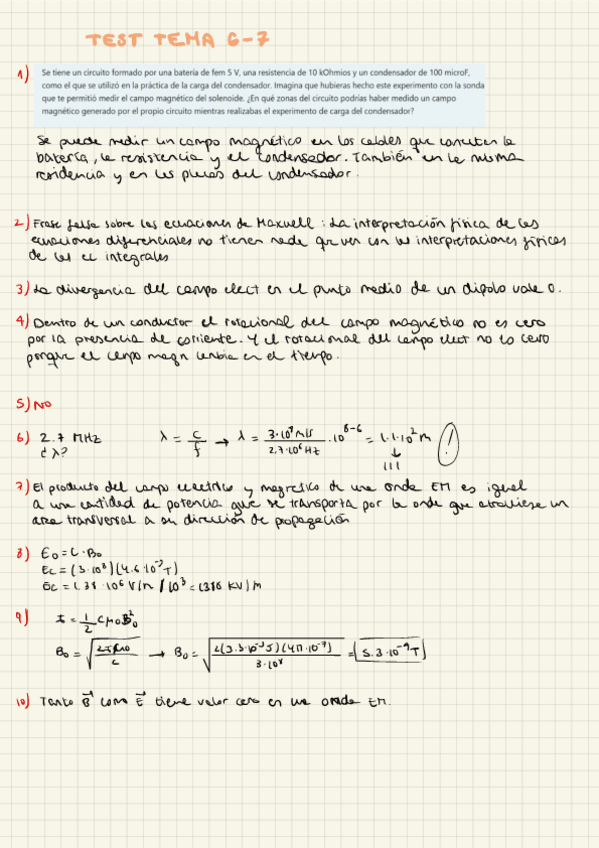 TEST TEMA 6-7
1) Se tiene un circuito formado por una batería de fem 5 V, una resistencia de 10 kOhmios y un condensador de 100 microF,
como el que se utilizó en la práctica de la carga del condensador. Imagina que hubieras hecho este experimento con la sonda
que te permitió medir el campo magnético del solenoide. ¿En qué zonas del circuito podrías haber medido un campo
magnético generado por el propio circuito mientras realizabas el experimento de carga del condensador?
Se puede medir un campo magnético en los cables que conectan la
batería, la resistencia y el condensador. También en la misma
residencia y en las placas del condensador.
2) Frase falsa sobre las ecuaciones de Maxwell: La interpretación física de las
ecuaciones diferenciales no tienen nada que ver con las interpretaciones físicas
de las ec integrales
3) La divergencia del campo elect en el punto medio de un dipolo vale 0.
4) Dentro de un conductor el rotacional del campo magnético no es cero
por la presencia de corriente. Y el rotacional del campo elect no es cero
porque el campo magn cambia en el tiempo.
5) NO
6) 2.7 MHz λ = c/f → λ = 3·10⁸ m/s / 2.7·10⁶ Hz ·10⁸⁻⁶ = 1.1·10² m !
¿λ? ↓
111
7) El producto del campo electrico y magnetico de una onda EM es igual
a una cantidad de potencia que se transporta por la onda que atraviese un
area transversal a su dirección de propagación
8) E₀ = C · B₀
E₀ = (3·10⁸)(4.6·10⁻³T)
E₀ = 1.38 · 10⁶ V/m / 10³ = 1380 KV/m
9) I = 1/2 Cμ₀B₀²
B₀ = √(2Iμ₀/c) → B₀ = √(2(3.3·10⁻³J)(4π·10⁻⁷)/3·10⁸) = 5.3·10⁻⁹T
10) Tanto B⃗ como E⃗ tiene valor cero en una onda EM.